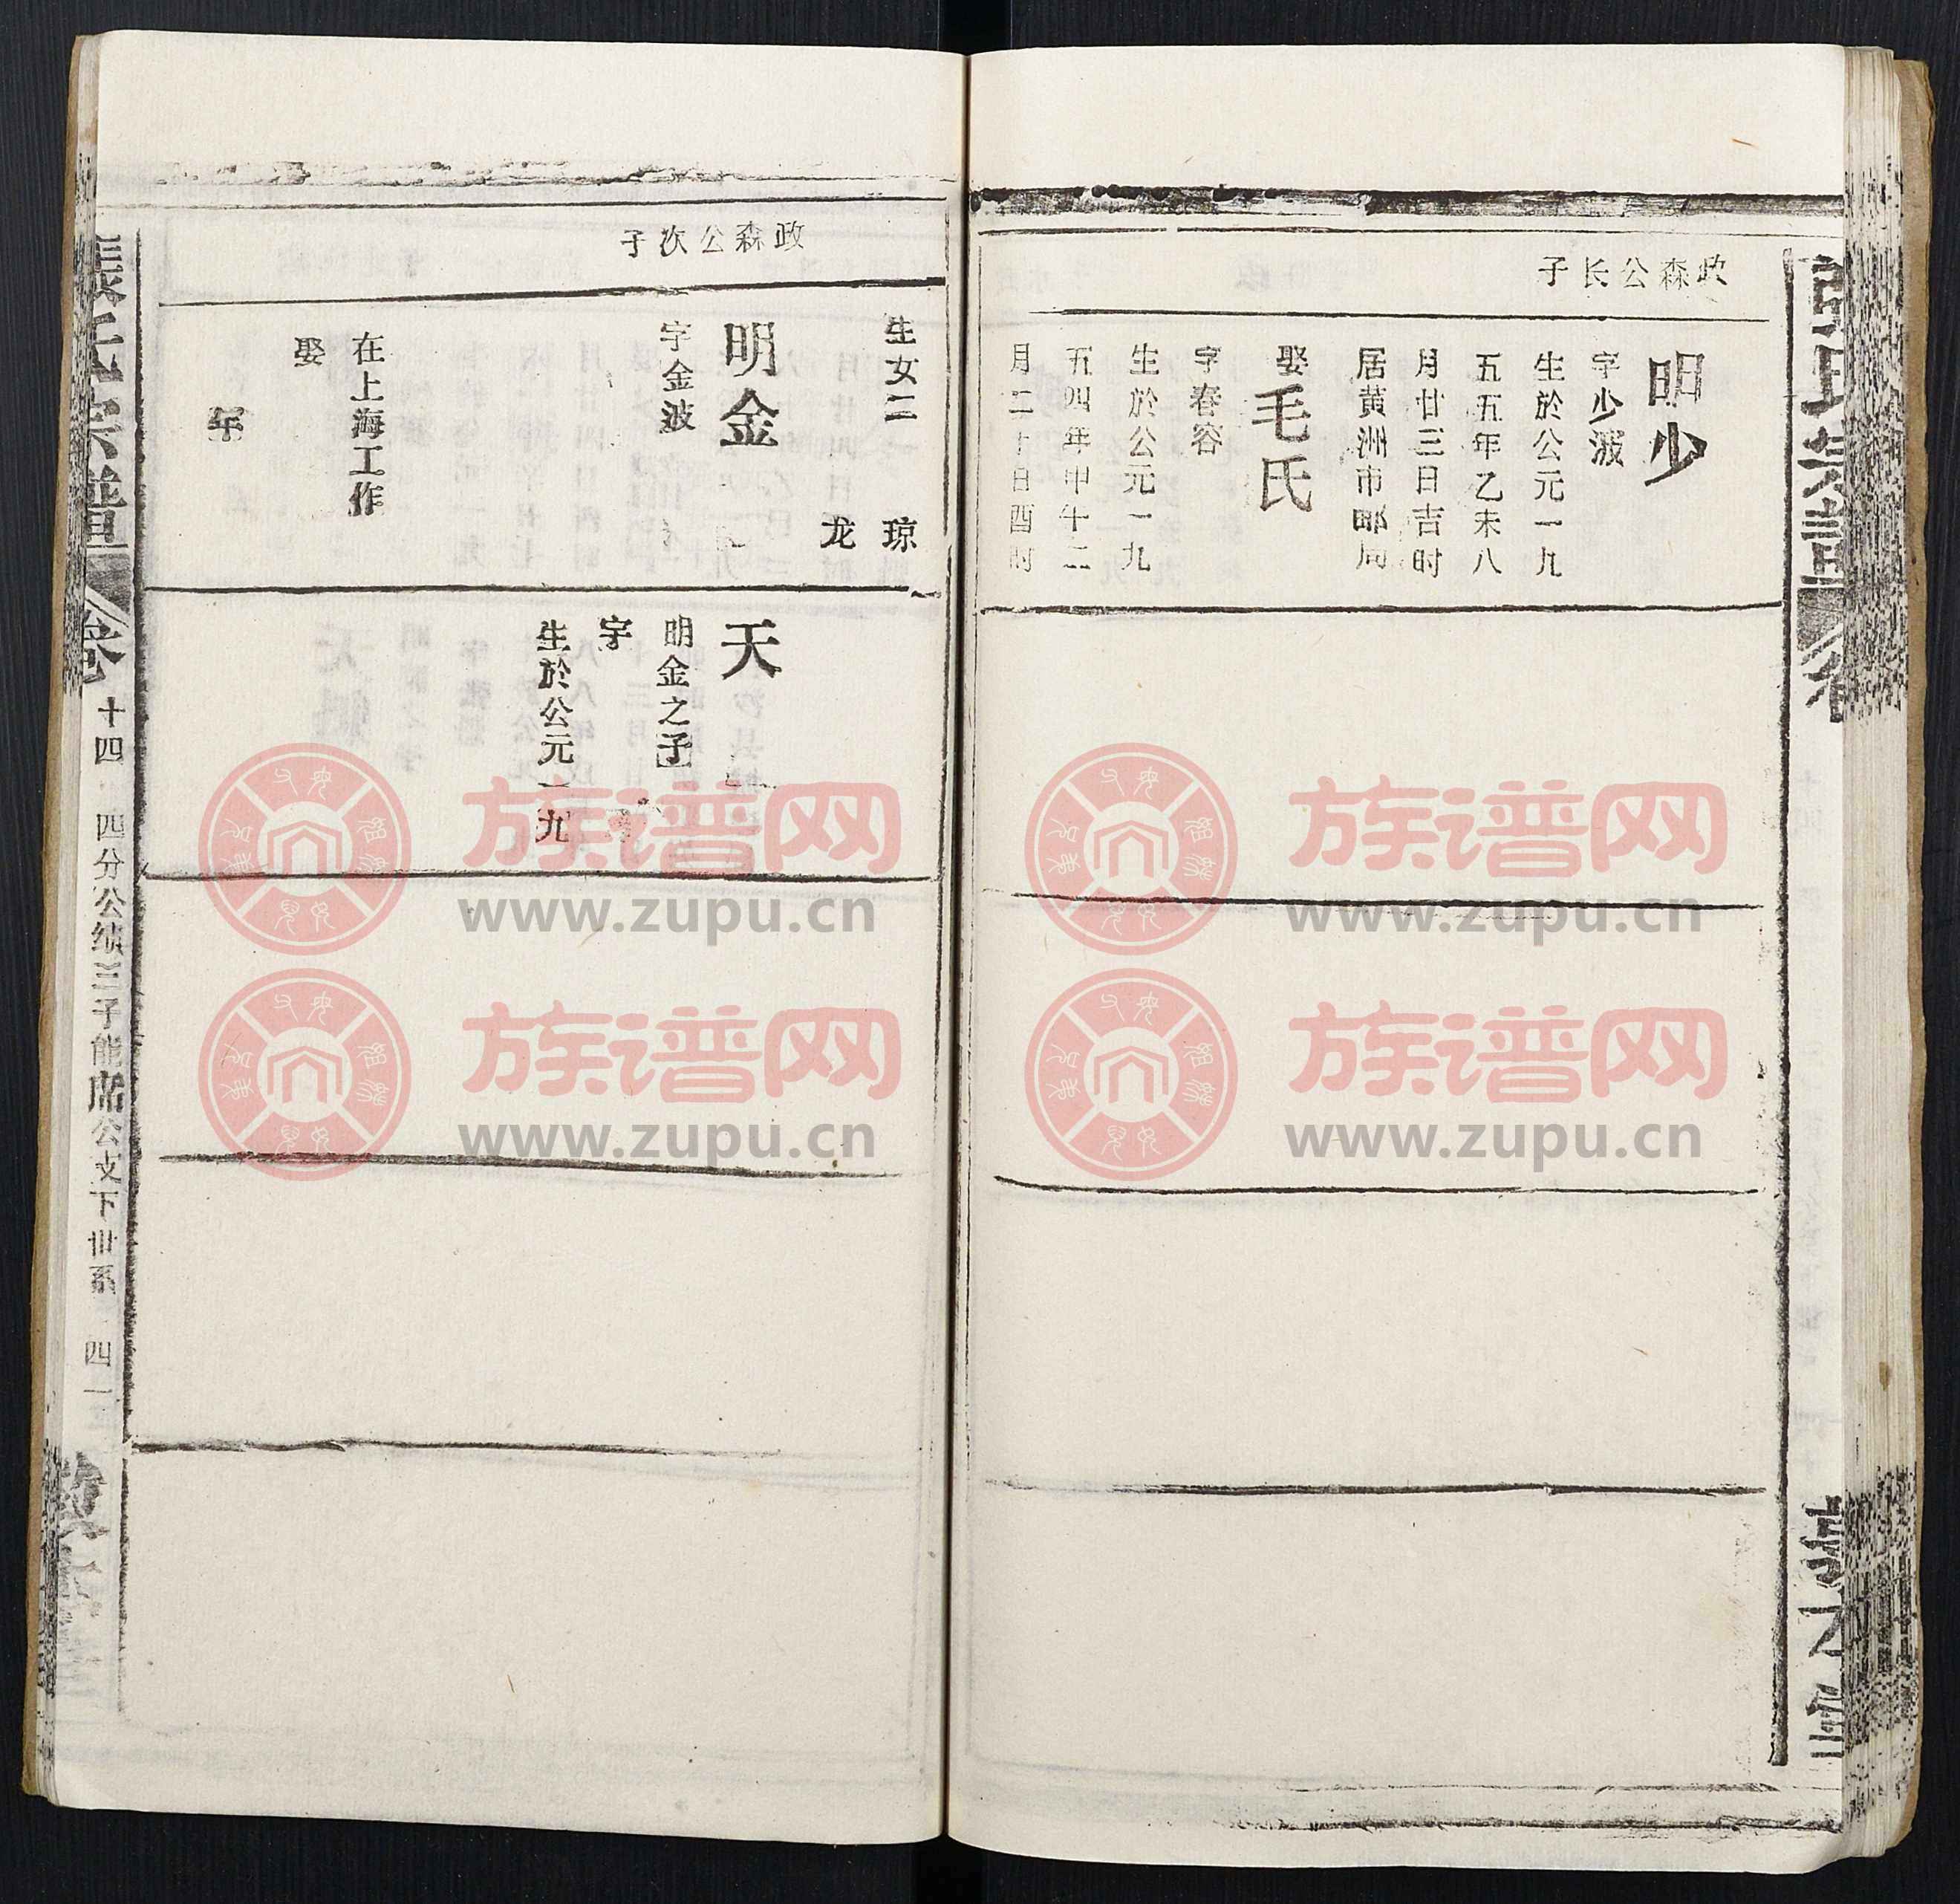 政森公长子
明少
字少波
生於公元一九
五五年乙未八
月廿三日吉时
居黄洲市邮局
娶毛氏
字春容
生於公元一九
五四年甲午十二
月二十日酉时
政森公次子
生女二 琼
龙
明金
字金波
在上海工作
娶
年
天
明金之子
字
生於公元一九
张氏宗谱 卷 十四 四分公绩三子能席公支下世系 四一
族谱网
www.zupu.cn
族谱网
www.zupu.cn
族谱网
www.zupu.cn
族谱网
www.zupu.cn